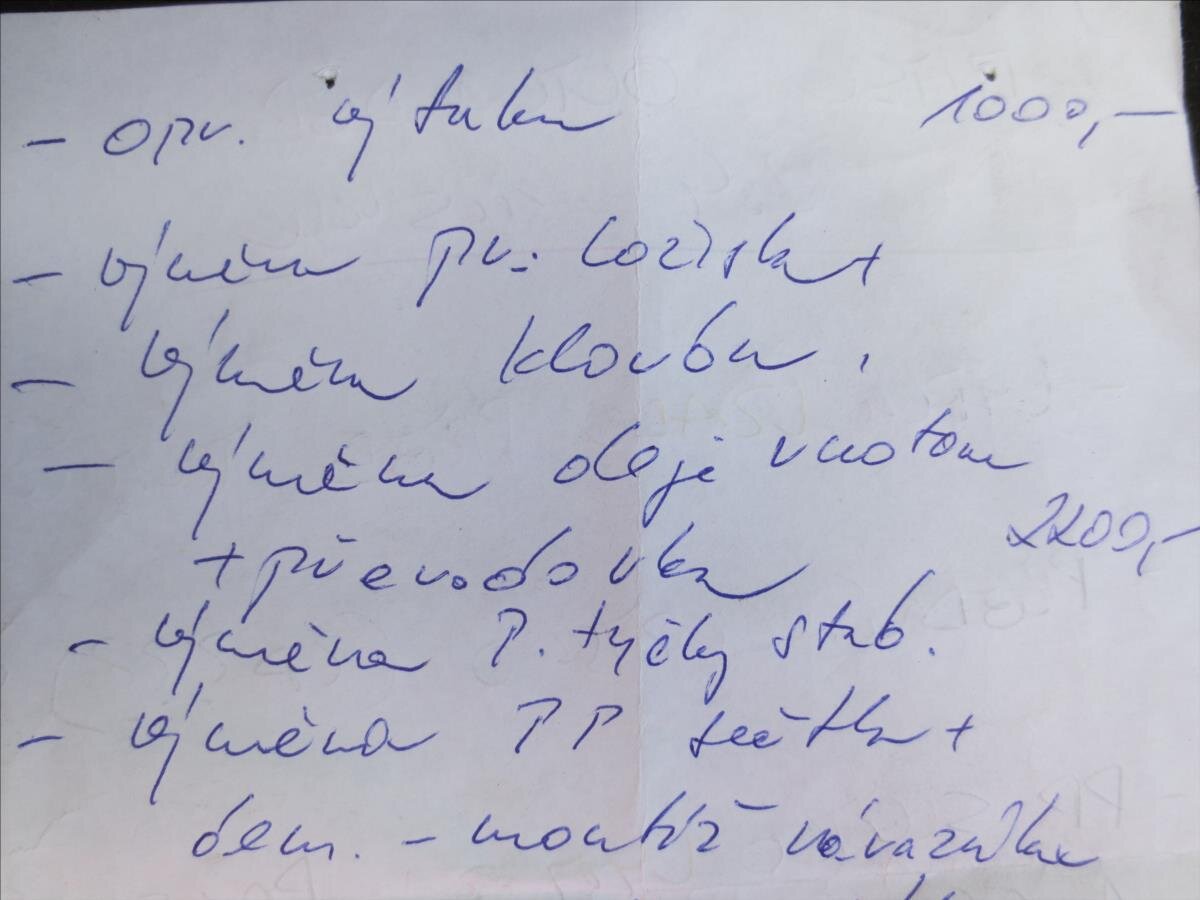 - opr. výfuku 1000,-
- výměna př. ložiska +
- výměna kloubu,
- výměna oleje v motoru
2200,-
+ převodovka
- výměna P. tyčky stab.
- výměna PP světla +
dem. - montáž nárazníku